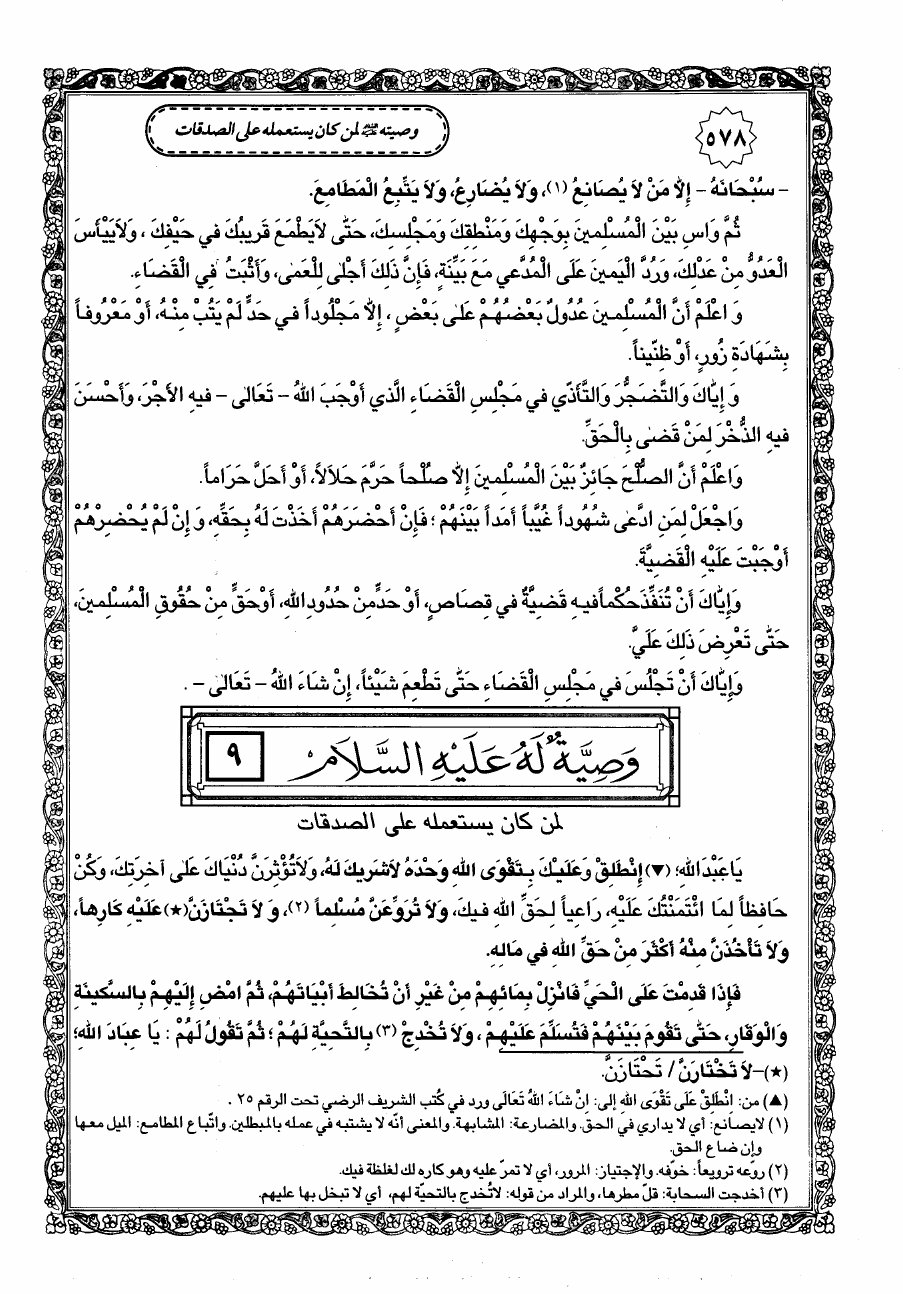 ٥٧٨
وصيته ﷺ لمن كان يستعمله على الصدقات
– سُبْحَانَهُ – إِلاَّ مَنْ لاَ يُصَانِعُ (١)، وَلاَ يُضَارِعُ، وَلاَ يَتَّبِعُ الْمَطَامِعَ.
ثُمَّ وَاسِ بَيْنَ الْمُسْلِمينَ بِوَجْهِكَ وَمَنْطِقِكَ وَمَجْلِسِكَ، حَتّٰى لاَيَطْمَعَ قَريبُكَ في حَيْفِكَ ، وَلاَيَيْأَسَ
الْعَدُوُّ مِنْ عَدْلِكَ، وَرُدَّ الْيَمينَ عَلَى الْمُدَّعي مَعَ بَيِّنَةٍ، فَإِنَّ ذَلِكَ أَجْلٰى لِلْعَمٰى، وَأَثْبَتُ فِي الْقَضَاءِ.
وَ اعْلَمْ أَنَّ الْمُسْلِمينَ عُدُولٌ بَعْضُهُمْ عَلٰى بَعْضٍ ، إِلاَّ مَجْلُوداً في حَدٍّ لَمْ يَتُبْ مِنْهُ، أَوْ مَعْرُوفاً
بِشَهَادَةِ زُورٍ، أَوْ ظَنّيناً.
وَ إِيَّاكَ وَالتَّضَجُّرَ وَالتَّأَذّي في مَجْلِسِ الْقَضَاءِ الَّذي أَوْجَبَ اللهُ – تَعَالٰى – فيهِ الأَجْرَ، وَأَحْسَنَ
فيهِ الذُّخْرَ لِمَنْ قَضٰى بِالْحَقِّ.
وَاعْلَمْ أَنَّ الصُّلْحَ جَائِزٌ بَيْنَ الْمُسْلِمينَ إِلاَّ صُلْحاً حَرَّمَ حَلاَلاً، أَوْ أَحَلَّ حَرَاماً.
وَاجْعَلْ لِمَنِ ادَّعٰى شُهُوداً غُيَّباً أَمَداً بَيْنَهُمْ ؛ فَإِنْ أَحْضَرَهُمْ أَخَذْتَ لَهُ بِحَقِّهِ، وَ إِنْ لَمْ يُحْضِرْهُمْ
أَوْجَبْتَ عَلَيْهِ الْقَضِيَّةَ.
وَإِيَّاكَ أَنْ تُنَفِّذَ حُكْماً فيهِ قَضِيَّةٌ في قِصَاصٍ، أَوْ حَدٍّ مِنْ حُدُودِ اللهِ، أَوْ حَقٍّ مِنْ حُقُوقِ الْمُسْلِمينَ،
حَتّٰى تَعْرِضَ ذَلِكَ عَلَيَّ.
وَإِيَّاكَ أَنْ تَجْلُسَ في مَجْلِسِ الْقَضَاءِ حَتّٰى تَطْعِمَ شَيْئاً، إِنْ شَاءَ اللهُ – تَعَالٰى – .
وَصِيَّةٌ لَهُ عَلَيْهِ السَّلاَمُ ٩
لمن كان يستعمله على الصدقات
يَا عَبْدَ اللهِ؛ (▼) إِنْطَلِقْ وَعَلَيْكَ بِتَقْوَى اللهِ وَحْدَهُ لاَشَريكَ لَهُ، وَلاَتُؤْثِرَنَّ دُنْيَاكَ عَلٰى آخِرَتِكَ، وَكُنْ
حَافِظاً لِمَا ائْتَمَنْتُكَ عَلَيْهِ، رَاعِياً لِحَقِّ اللهِ فيكَ، وَلاَ تُرَوِّعَنَّ مُسْلِماً (٢)، وَ لاَ تَجْتَازَنَّ(★) عَلَيْهِ كَارِهاً،
وَلاَ تَأْخُذَنَّ مِنْهُ أَكْثَرَ مِنْ حَقِّ اللهِ في مَالِهِ.
فَإِذَا قَدِمْتَ عَلَى الْحَيِّ فَانْزِلْ بِمَائِهِمْ مِنْ غَيْرِ أَنْ تُخَالِطَ أَبْيَاتَهُمْ، ثُمَّ امْضِ إِلَيْهِمْ بِالسَّكينَةِ
وَالْوَقَارِ، حَتّٰى تَقُومَ بَيْنَهُمْ فَتُسَلِّمَ عَلَيْهِمْ ، وَلاَ تُخْدِجْ (٣) بِالتَّحِيَّةِ لَهُمْ؛ ثُمَّ تَقُولُ لَهُمْ : يَا عِبَادَ اللهِ؛
(★)–لاَ تَخْتَارَنَّ / تَحْتَازَنَّ.
(▲) من: انْطَلِقْ عَلَى تَقْوَى اللهِ إلى: إنْ شَاءَ اللهُ تَعَالَى ورد في كُتب الشريف الرضي تحت الرقم ٢٥ .
(١) لايصانع: أي لا يداري في الحق. والمضارعة: المشابهة. والمعنى أنّه لا يشتبه في عمله بالمبطلين. واتّباع المطامع: الميل معها
وإن ضاع الحق.
(٢) روّعه ترويعاً: خوّفه. والإجتياز: المرور، أي لا تمرّ عليه وهو كاره لك لغلظة فيك.
(٣) أخدجت السحابة: قلّ مطرها، والمراد من قوله: لاتُخدج بالتحيّة لهم، أي لا تبخل بها عليهم.